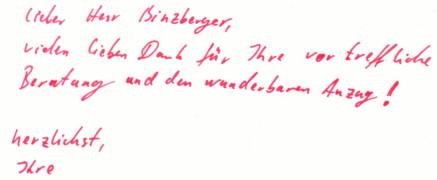 lieber Herr Binzberger,
vielen lieben Dank für Ihre vortreffliche
Beratung und den wunderbaren Anzug!
herzlichst,
Ihre